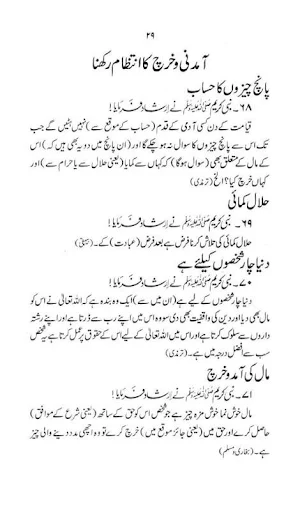 ۲۹
آمدنی و خرچ کا انتظام رکھنا
پانچ چیزوں کا حساب
۶۸۔ نبی کریم ﷺ نے ارشاد فرمایا!
قیامت کے دن کسی آدمی کے قدم (حساب کے موقع سے) نہیں ہٹیں گے جب
تک اس سے پانچ چیزوں کا سوال نہ ہو چکے گا اور (ان پانچ میں دو یہ بھی ہیں کہ) اس
کے مال کے متعلق بھی (سوال ہوگا) کہ کہاں سے کمایا (یعنی حلال سے یا حرام سے) اور
کہاں خرچ کیا؟ الخ (ترمذی)
حلال کمائی
۶۹۔ نبی کریم ﷺ نے ارشاد فرمایا!
حلال کمائی کی تلاش کرنا فرض ہے بعد فرض (عبادت) کے۔ (بیہقی)
دنیا چار شخصوں کیلئے ہے
۷۰۔ نبی کریم ﷺ نے ارشاد فرمایا!
دنیا چار شخصوں کے لیے ہے (ان میں سے) ایک وہ بندہ ہے کہ اللہ تعالیٰ نے اس کو
مال بھی دیا اور دین کی واقفیت بھی دی سو وہ اس میں اپنے رب سے ڈرتا ہے اور اپنے رشتہ
داروں سے سلوک کرتا ہے اور اس میں اللہ تعالیٰ کے لیے اس کے حقوق پر عمل کرتا ہے یہ شخص
سب سے افضل درجہ میں ہے۔ (ترمذی)
مال کی آمد و خرچ
۷۱۔ نبی کریم ﷺ نے ارشاد فرمایا!
مال خوش نما خوش مزہ چیز ہے جو شخص اس کو حق کے ساتھ (یعنی شرع کے موافق)
حاصل کرے اور حق میں (یعنی جائز موقع میں) خرچ کرے تو وہ اچھی مدد دینے والی چیز
ہے۔ (بخاری و مسلم)